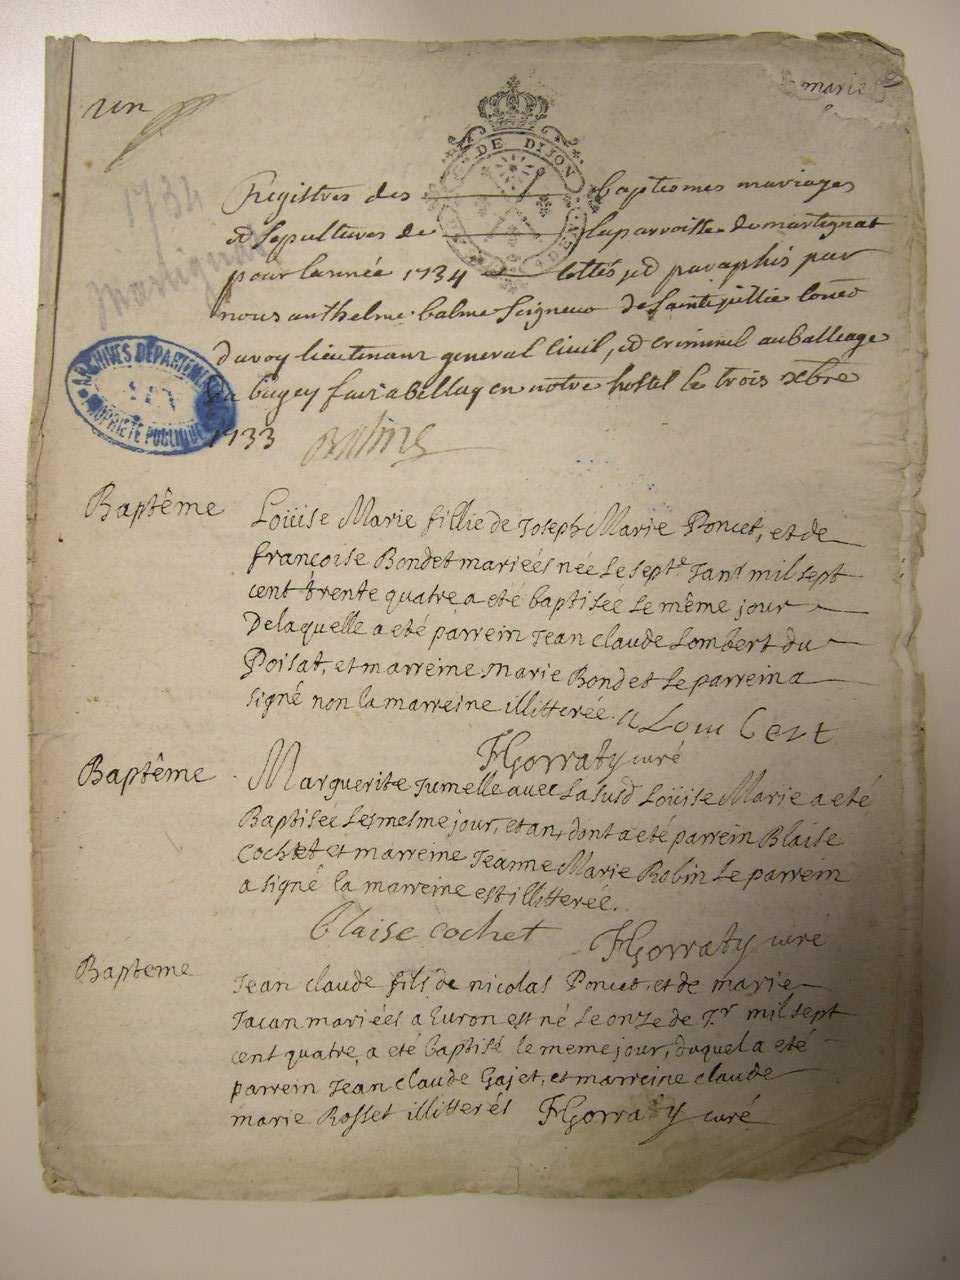 un
marie
DE DIJON
1734
Martignat
Registres des baptesmes mariages
et sepultures de la parroisse de martignat
pour lannée 1734 cottés et paraphés par
nous anthelme balme Seigneur de Sainte Con
du roy lieutenant general Civil, et criminel au balleage
du bugey fait a Belley en notre hostel le trois xbre
1733 Balme
ARCHIVES DEPARTEMEN
PROPRIETE PUBLIQUE
Baptême
Loüise Marie fillie de Joseph Marie Poncet, et de
françoise Bondet mariéés née le septe. Janr mil sept
cent trente quatre a eté baptisée le même jour
De laquelle a eté parrein Jean claude Lombert du
Poisat, et marreine marie Bondet le parrein a
signé non la marreine illitterée.
FGorraty curé
Baptême
Marguerite Jumelle avec la susd Loüise Marie a eté
Baptisée les mesme jour, et an, dont a eté parrein Blaise
Cochet et marreine Jeanne Marie Robin le parrein
a signé la marreine est illitterée.
blaise cochet FGorraty curé
Bapteme
Jean claude fils de nicolas Poncet, et de marie
Jacan mariées a Evron est né le onze de Jr mil sept
cent quatre, a eté baptisé le meme jour, duquel a eté
parrein Jean claude Gajet, et marreine claude
marie Rosset illitterés FGorraty curé